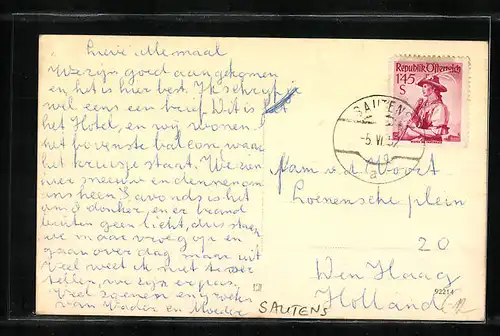 Lieve Allemaal
We zijn goed aangekomen
en het is hier best. Ik schrijf je
wel eens een brief. Dit is het
het Hotel, en wij wonen
het bovenste balcon waar
het kruisje staat. We zien
hier sneeuw en dennen om
ons heen. 's avonds is het
donker, en er brand
buiten geen licht, dus
we maar vroeg op en
gaan over dag maar uit
Veel weet ik niet te ver
tellen, we zijn er pas.
Veel zoenen en
van Vader en Moeder
Republik Österreich
1.45
S
SAUTENS
-5.VI.5
a
Fam v.d. Voort
Loenensche plein
20
Den Haag
Holland
92214
SAUTENS